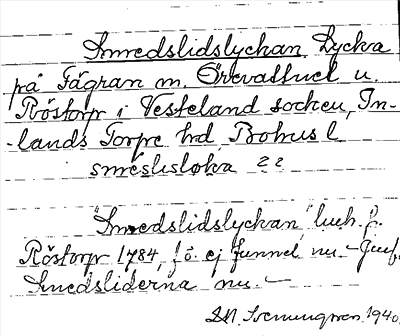 Smedslidslyckan, Lycka
på Fägran m. Örevattnet u.
Röstorp i Vesteland socken, In-
-lands Torpe hd, Bohusl.
"Smedslidslyckan" luh. f.
Röstorp 1784, fö. ej funnel nu. - Jmf.
Smedsliderna nu. -
1940.